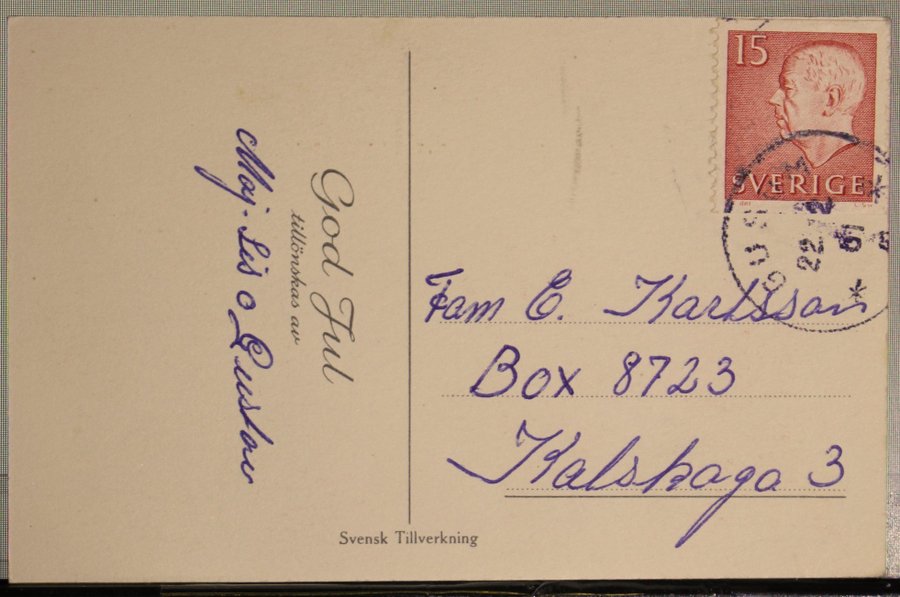 God Jul
tillönskas av
Maj-Lis o Gustav
15
SVERIGE
GUSUM
22 12
Fam E. Karlsson
Box 8723
Kalskaga 3
Svensk Tillverkning